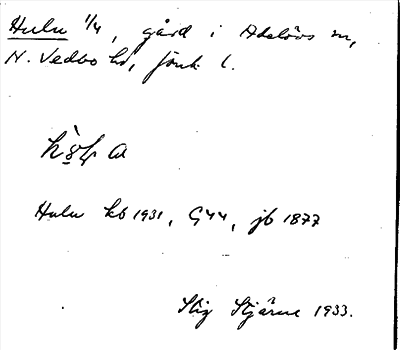 Hulu 1/4, gård i Adelövs sn,
N. Vedbo hd, Jönk. l.
Hulu kb 1931, G44, jb 1877
Stig Stjärne 1933.